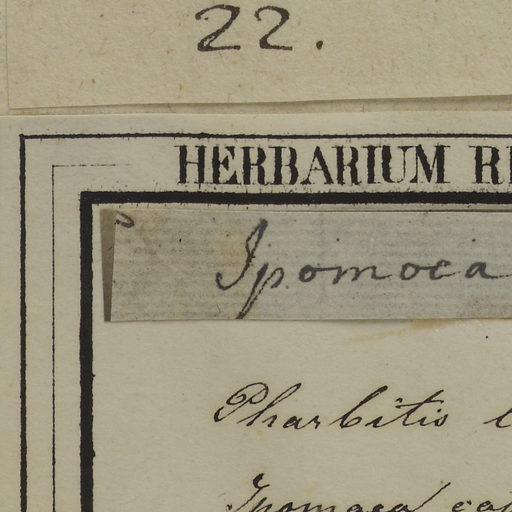 22.
HERBARIUM
Ipomoea
Pharbitis
Ipomoea